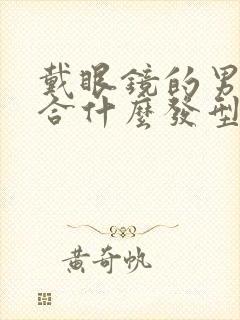 戴眼鏡的男
合什麼發型
黃奇帆